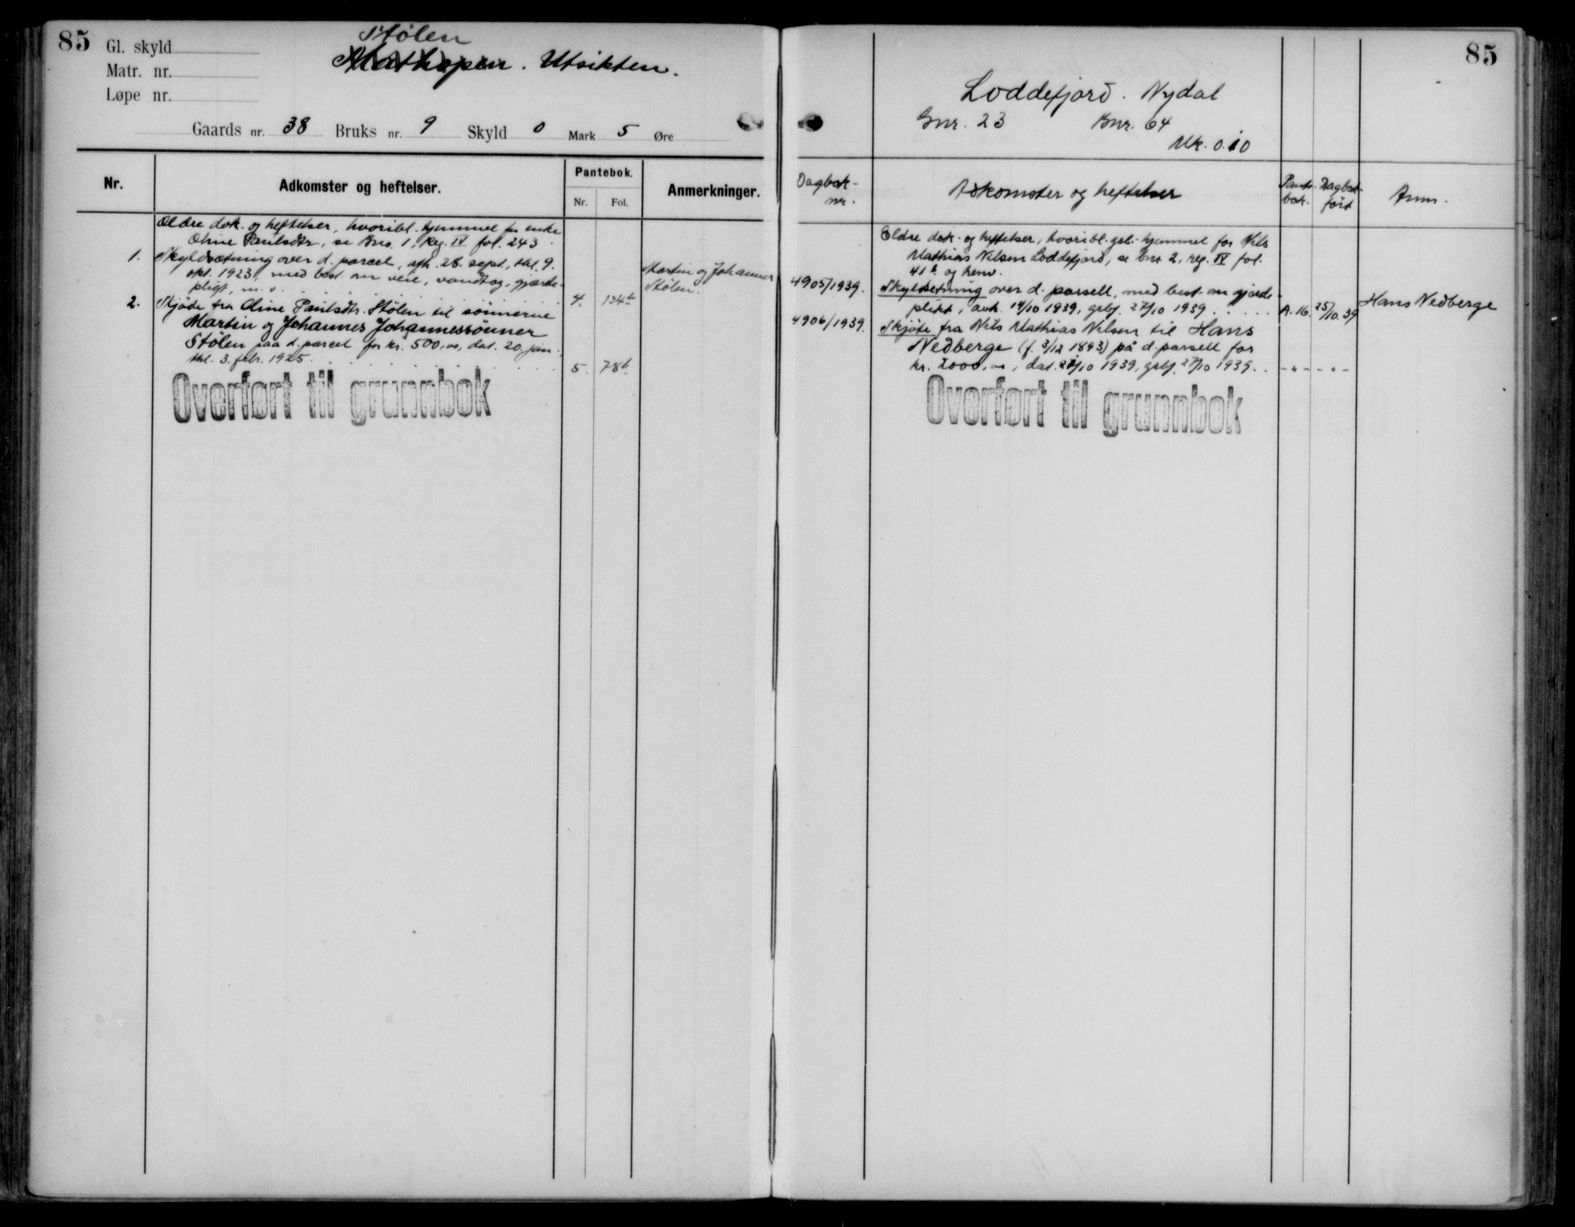 85
Gl. skyld
Matr. nr.
Løpe nr.
Stølen
Mathopen. Utsikten.
Gaards nr. 38 Bruks nr. 9 Skyld 0 Mark 5 Øre
Nr. Adkomster og heftelser. Pantebok. Anmerkninger.
Nr. Fol.
Ældre dok. og heftelser, hvoribl. hjemmel for enke
Oline Paulsdtr., se Bno. 1, Reg. IV fol. 243.
1. Skyldsætning over d. parcel, afh. 28. sept., thl. 9.
okt. 1923, med best. om veie, vandtag, gjærde-
pligt, m. v. 4. 134b
Martin og Johannes
Stølen.
2. Skjøde fra Oline Paulsdtr. Stølen til sønnerne
Martin og Johannes Johannessønner
Stølen paa d. parcel for kr. 500,00, dat. 20. jan.
thl. 3. febr. 1925. 5. 78b
Overført til grunnbok
85
Loddefjord. Nydal
Gnr. 23 Bnr. 64
Mk. 0.10
Dagbok-
nr.
Adkomster og heftelser
Pante-
bok.
Dagbok-
ført
Anm.
Eldre dok. og heftelser, hvoribl. gel. hjemmel for Nils
Mathias Nilsen Loddefjord, se bnr 2, reg. IV fol.
41b og henv.
4905/1939. Skyldsetning over d. parsell, med best. om gjerde-
plikt, avh. 14/10 1939, grbf. 27/10 1939 A. 16. 25/10.39 Hans Nedberge
4906/1939. Skjøte fra Nils Mathias Nilsen til Hans
Nedberge (f. 3/12 1893) på d. parsell for
kr. 2000,00, dat. 21/10 1939, grbf. 27/10 1939. - " - - " -
Overført til grunnbok